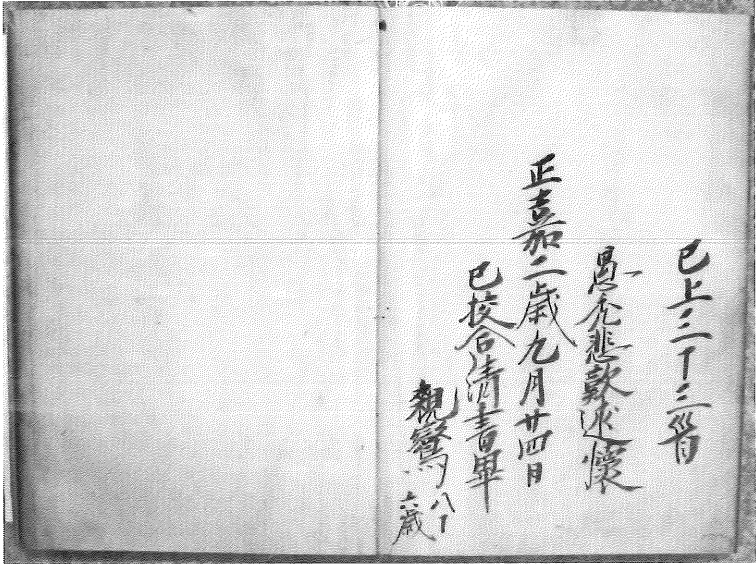 已上三十三首
愚禿悲歎述懷
正嘉二歳九月廿四日
已挍合清書畢
親鸞八十六歳